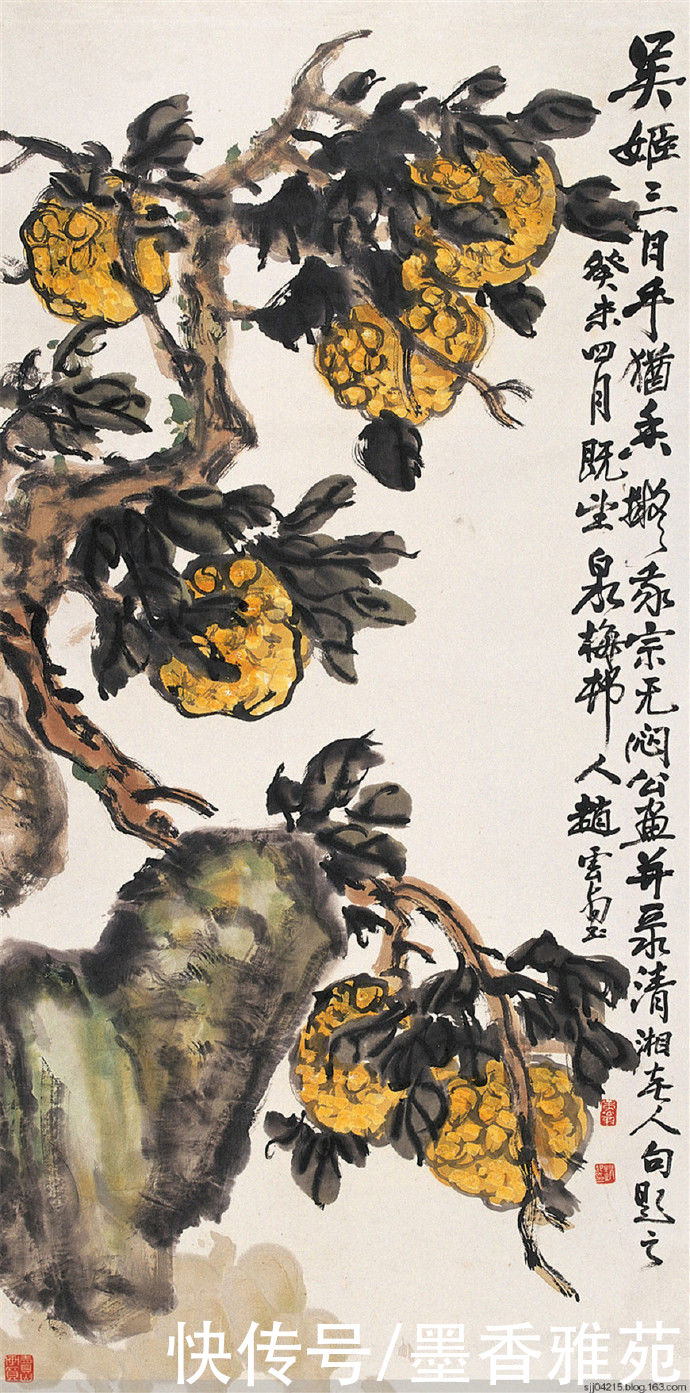 吴姬三日手猶香擬我宗无闷公畫并录清湘老人句題之
癸未四月既望泉梅邨人趙雲壑
快传号/墨香雅苑
sjj04215.blog.163.com